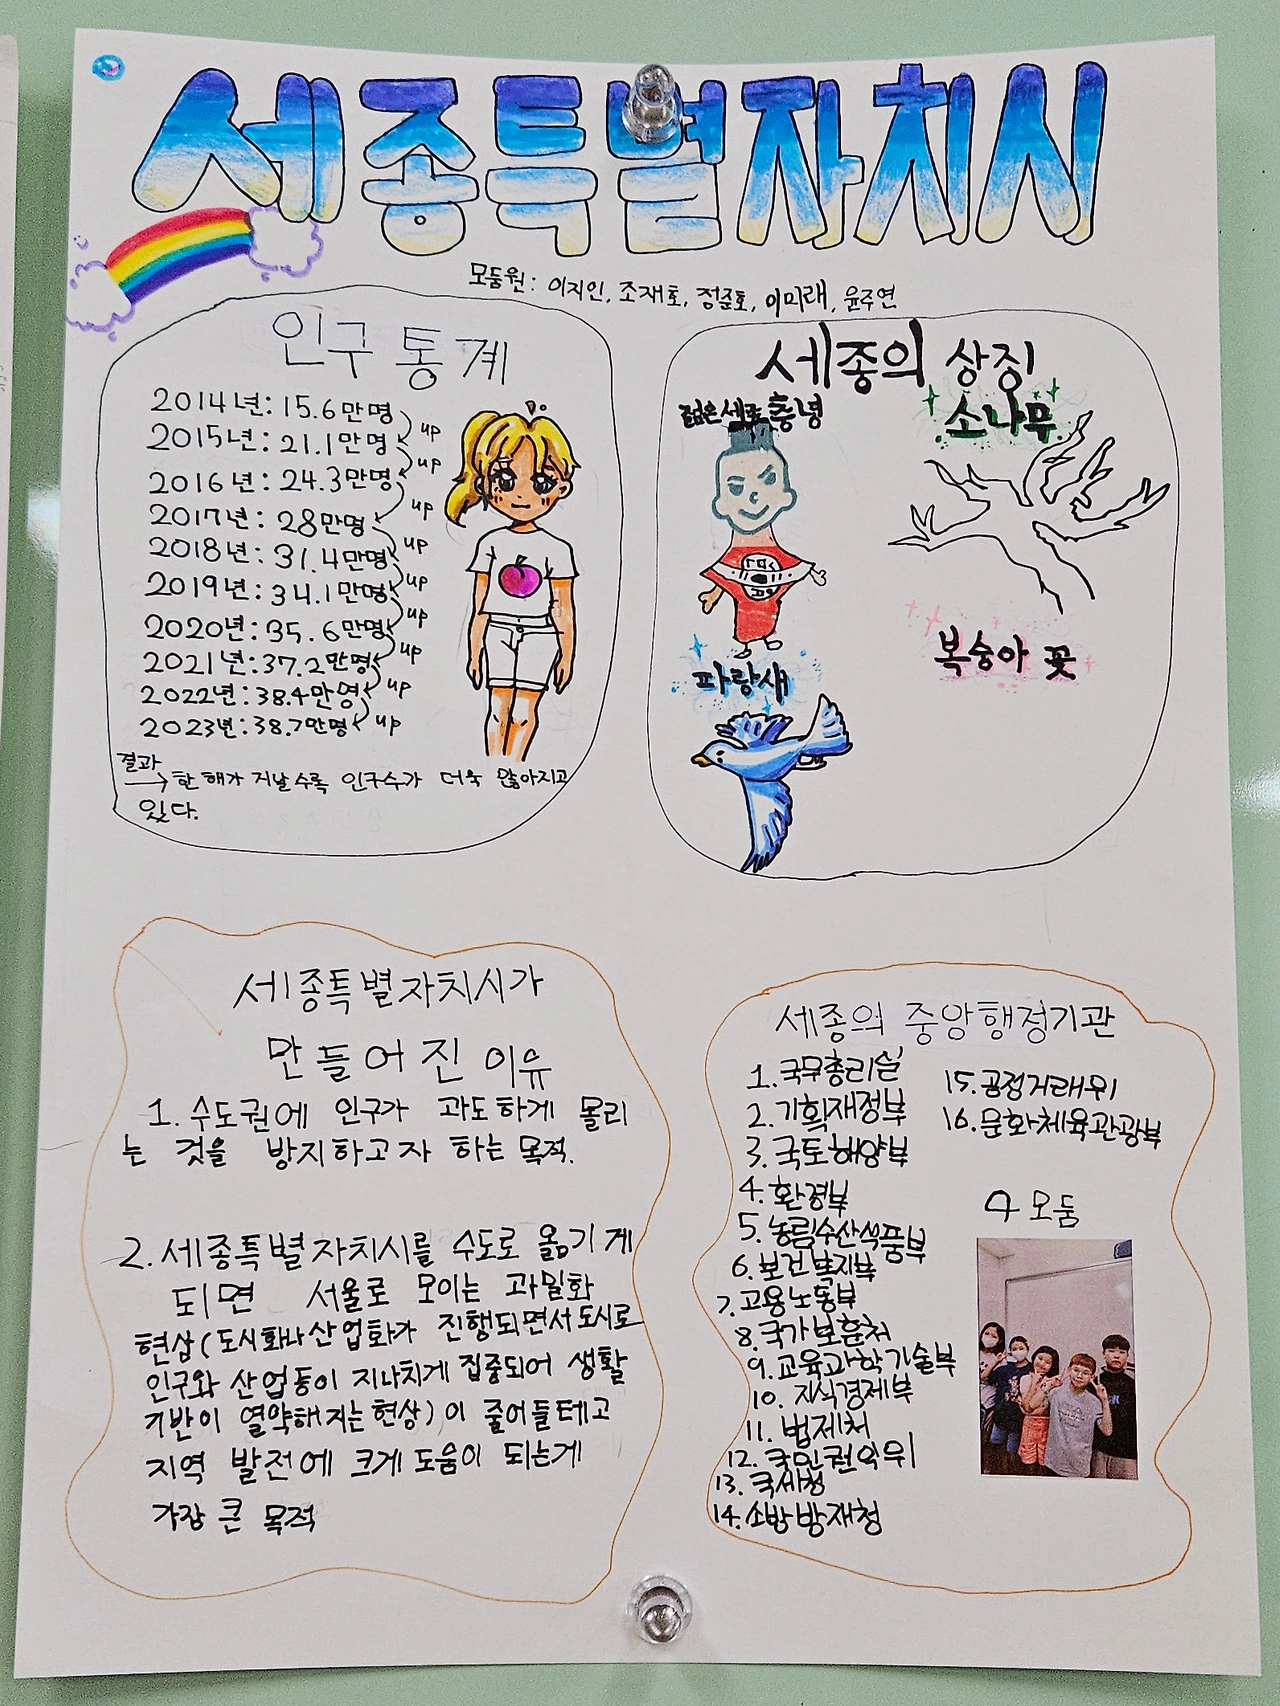 세종특별자치시
모둠원: 이지인, 조재호, 정준호, 이미래, 윤주연
인구 통계
2014년: 15.6만명
up
2015년: 21.1만명
up
2016년: 24.3만명
up
2017년: 28만명
up
2018년: 31.4만명
up
2019년: 34.1만명
up
2020년: 35.6만명
up
2021년: 37.2만명
up
2022년: 38.4만명
up
2023년: 38.7만명
결과
→ 한 해가 지날수록 인구수가 더욱 많아지고
있다.
세종의 상징
젊은 세종 충녕
소나무
복숭아 꽃
파랑새
세종특별자치시가
만들어진 이유
1. 수도권에 인구가 과도하게 몰리
는 것을 방지하고자 하는 목적.
2. 세종특별자치시를 수도로 옮기게
되면 서울로 모이는 과밀화
현상(도시화나 산업화가 진행되면서 도시로
인구와 산업등이 지나치게 집중되어 생활
기반이 열약해지는 현상)이 줄어들테고
지역 발전에 크게 도움이 되는게
가장 큰 목적
세종의 중앙행정기관
1. 국무총리실
2. 기획재정부
3. 국토해양부
4. 환경부
5. 농림수산식품부
6. 보건복지부
7. 고용노동부
8. 국가보훈처
9. 교육과학기술부
10. 지식경제부
11. 법제처
12. 국민권익위
13. 국세청
14. 소방방재청
15. 공정거래위
16. 문화체육관광부
4 모둠